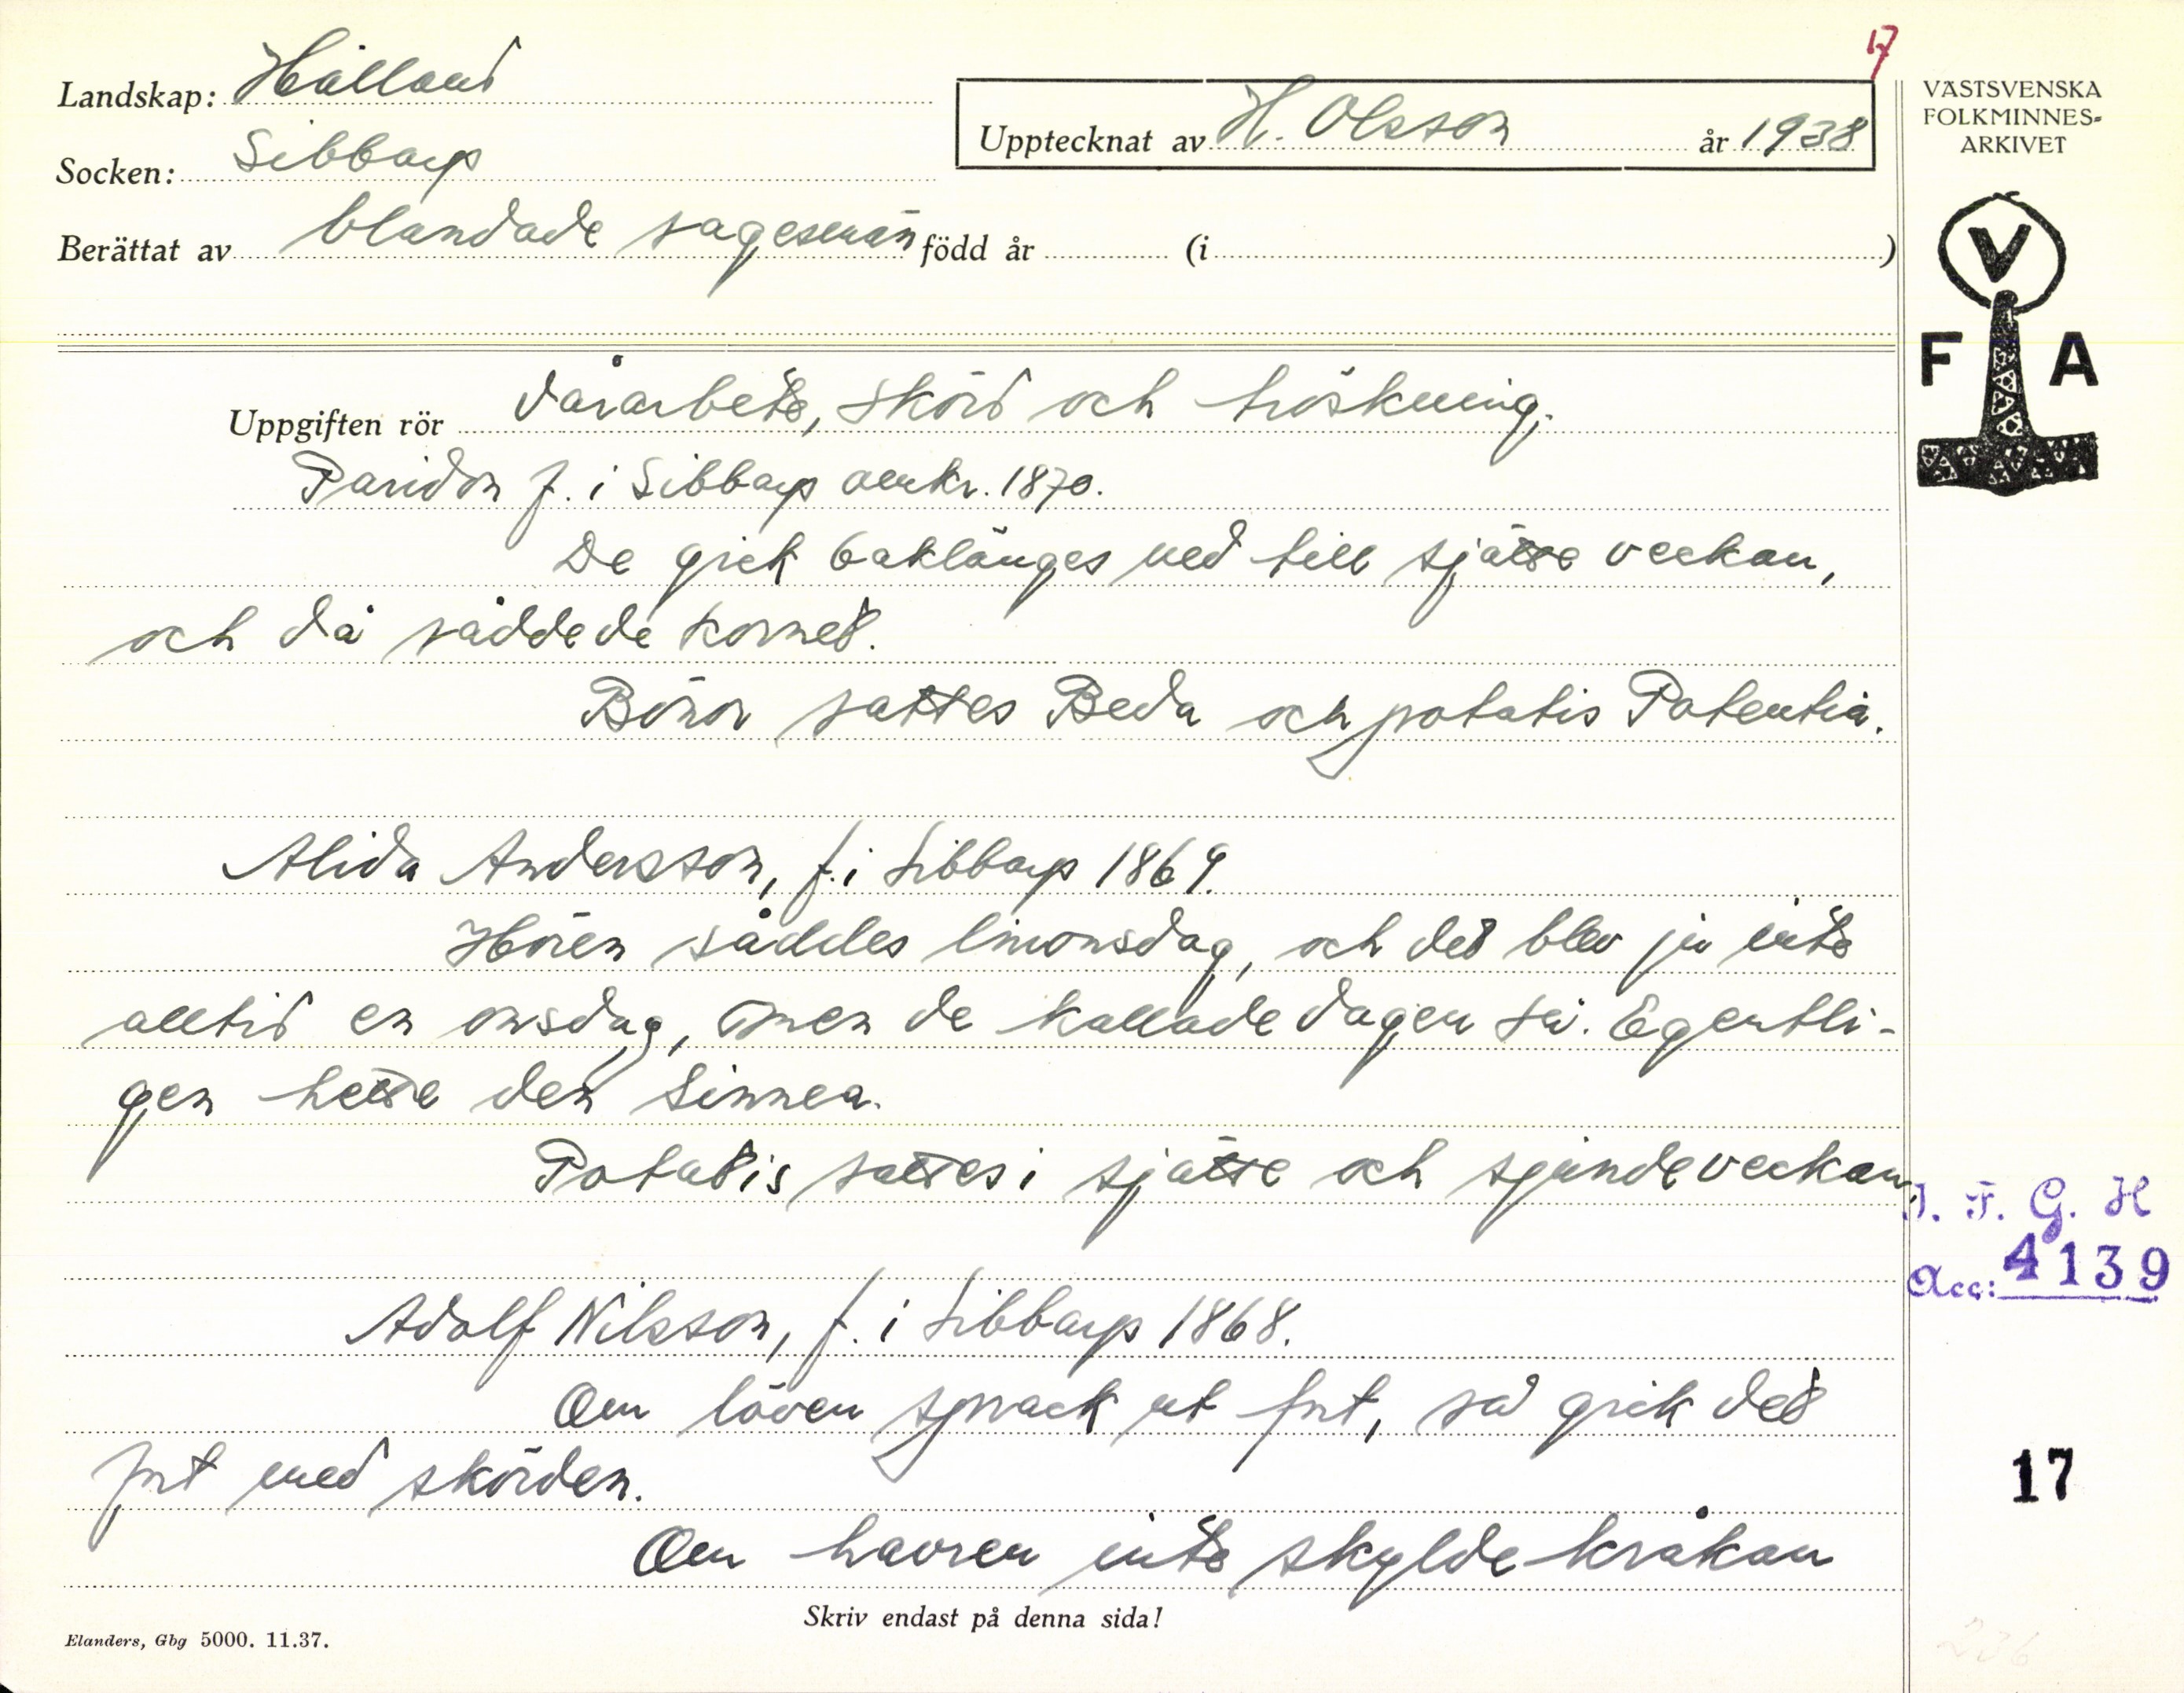 17
Landskap: Halland
Socken: Sibbarp
Berättat av blandade sagesmän född år (i )
Upptecknat av H. Olsson år 1938
VÄSTSVENSKA
FOLKMINNES-
ARKIVET
V
F A
Uppgiften rör Vårarbete, skörd och tröskning.
Paridon f. i Sibbarp omkr. 1870.
De gick baklänges ned till sjätte veckan,
och då sådde de kornet.
Bönor sattes Beda och potatis Potentia.
Alida Andersson, f. i Sibbarp 1869.
Hören såddes linonsdag, och det blev ju inte
alltid en onsdag, men de kallade dagen så. Egentli-
gen hette den Linnea.
Potatis sattes i sjätte och sjunde veckan.
Adolf Nilsson, f. i Sibbarp 1868.
Om löven sprack ut fort, så gick det
fort med skörden.
Om havren inte skylde kråkan
Skriv endast på denna sida!
Elanders, Gbg 5000. 11.37.
I. F. G. H
Acc: 4139
17
236